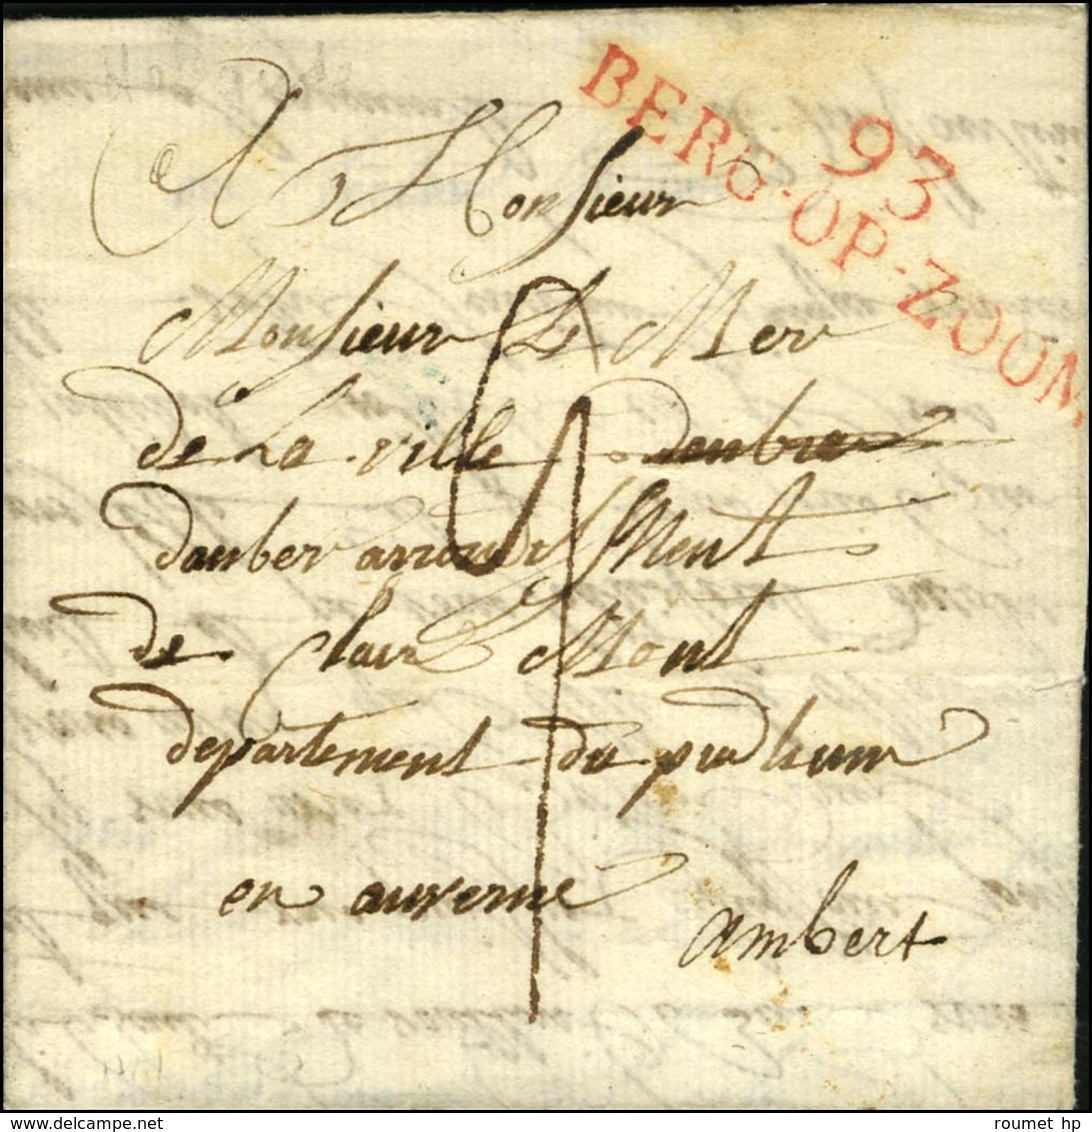 93
BERG-OP-ZOOM
A Monsieur
Monsieur Le Mer
de La ville denber
danber arrondissMent
de clair Mont
departement du puidhum
en auverne
ambert
delcampe.net
roumet hp